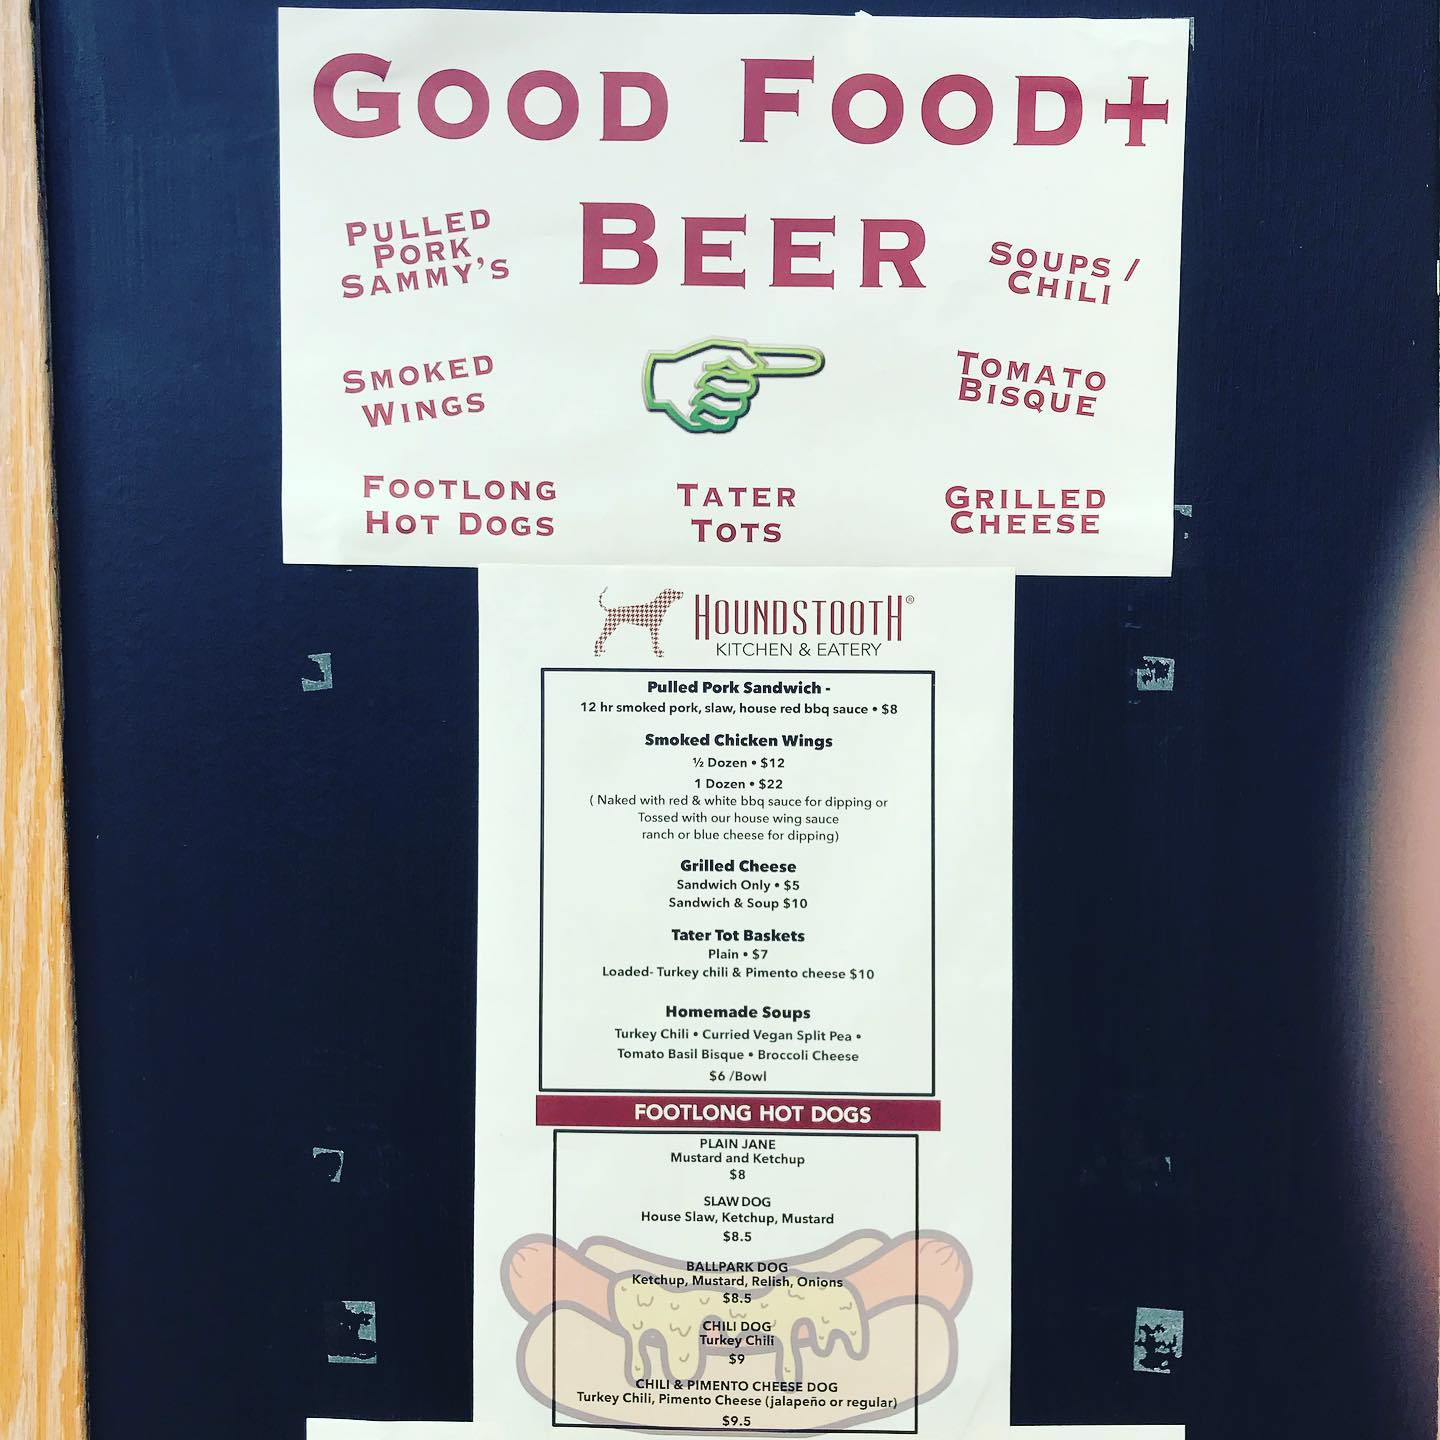 GOOD FOOD+
BEER
PULLED
PORK
SAMMY'S
SOUPS /
CHILI
SMOKED
WINGS
TOMATO
BISQUE
FOOTLONG
HOT DOGS
TATER
TOTS
GRILLED
CHEESE
HOUNDSTOOTH®
KITCHEN & EATERY
Pulled Pork Sandwich -
12 hr smoked pork, slaw, house red bbq sauce • $8
Smoked Chicken Wings
½ Dozen • $12
1 Dozen • $22
( Naked with red & white bbq sauce for dipping or
Tossed with our house wing sauce
ranch or blue cheese for dipping)
Grilled Cheese
Sandwich Only • $5
Sandwich & Soup $10
Tater Tot Baskets
Plain • $7
Loaded- Turkey chili & Pimento cheese $10
Homemade Soups
Turkey Chili • Curried Vegan Split Pea •
Tomato Basil Bisque • Broccoli Cheese
$6 /Bowl
FOOTLONG HOT DOGS
PLAIN JANE
Mustard and Ketchup
$8
SLAW DOG
House Slaw, Ketchup, Mustard
$8.5
BALLPARK DOG
Ketchup, Mustard, Relish, Onions
$8.5
CHILI DOG
Turkey Chili
$9
CHILI & PIMENTO CHEESE DOG
Turkey Chili, Pimento Cheese (jalapeño or regular)
$9.5